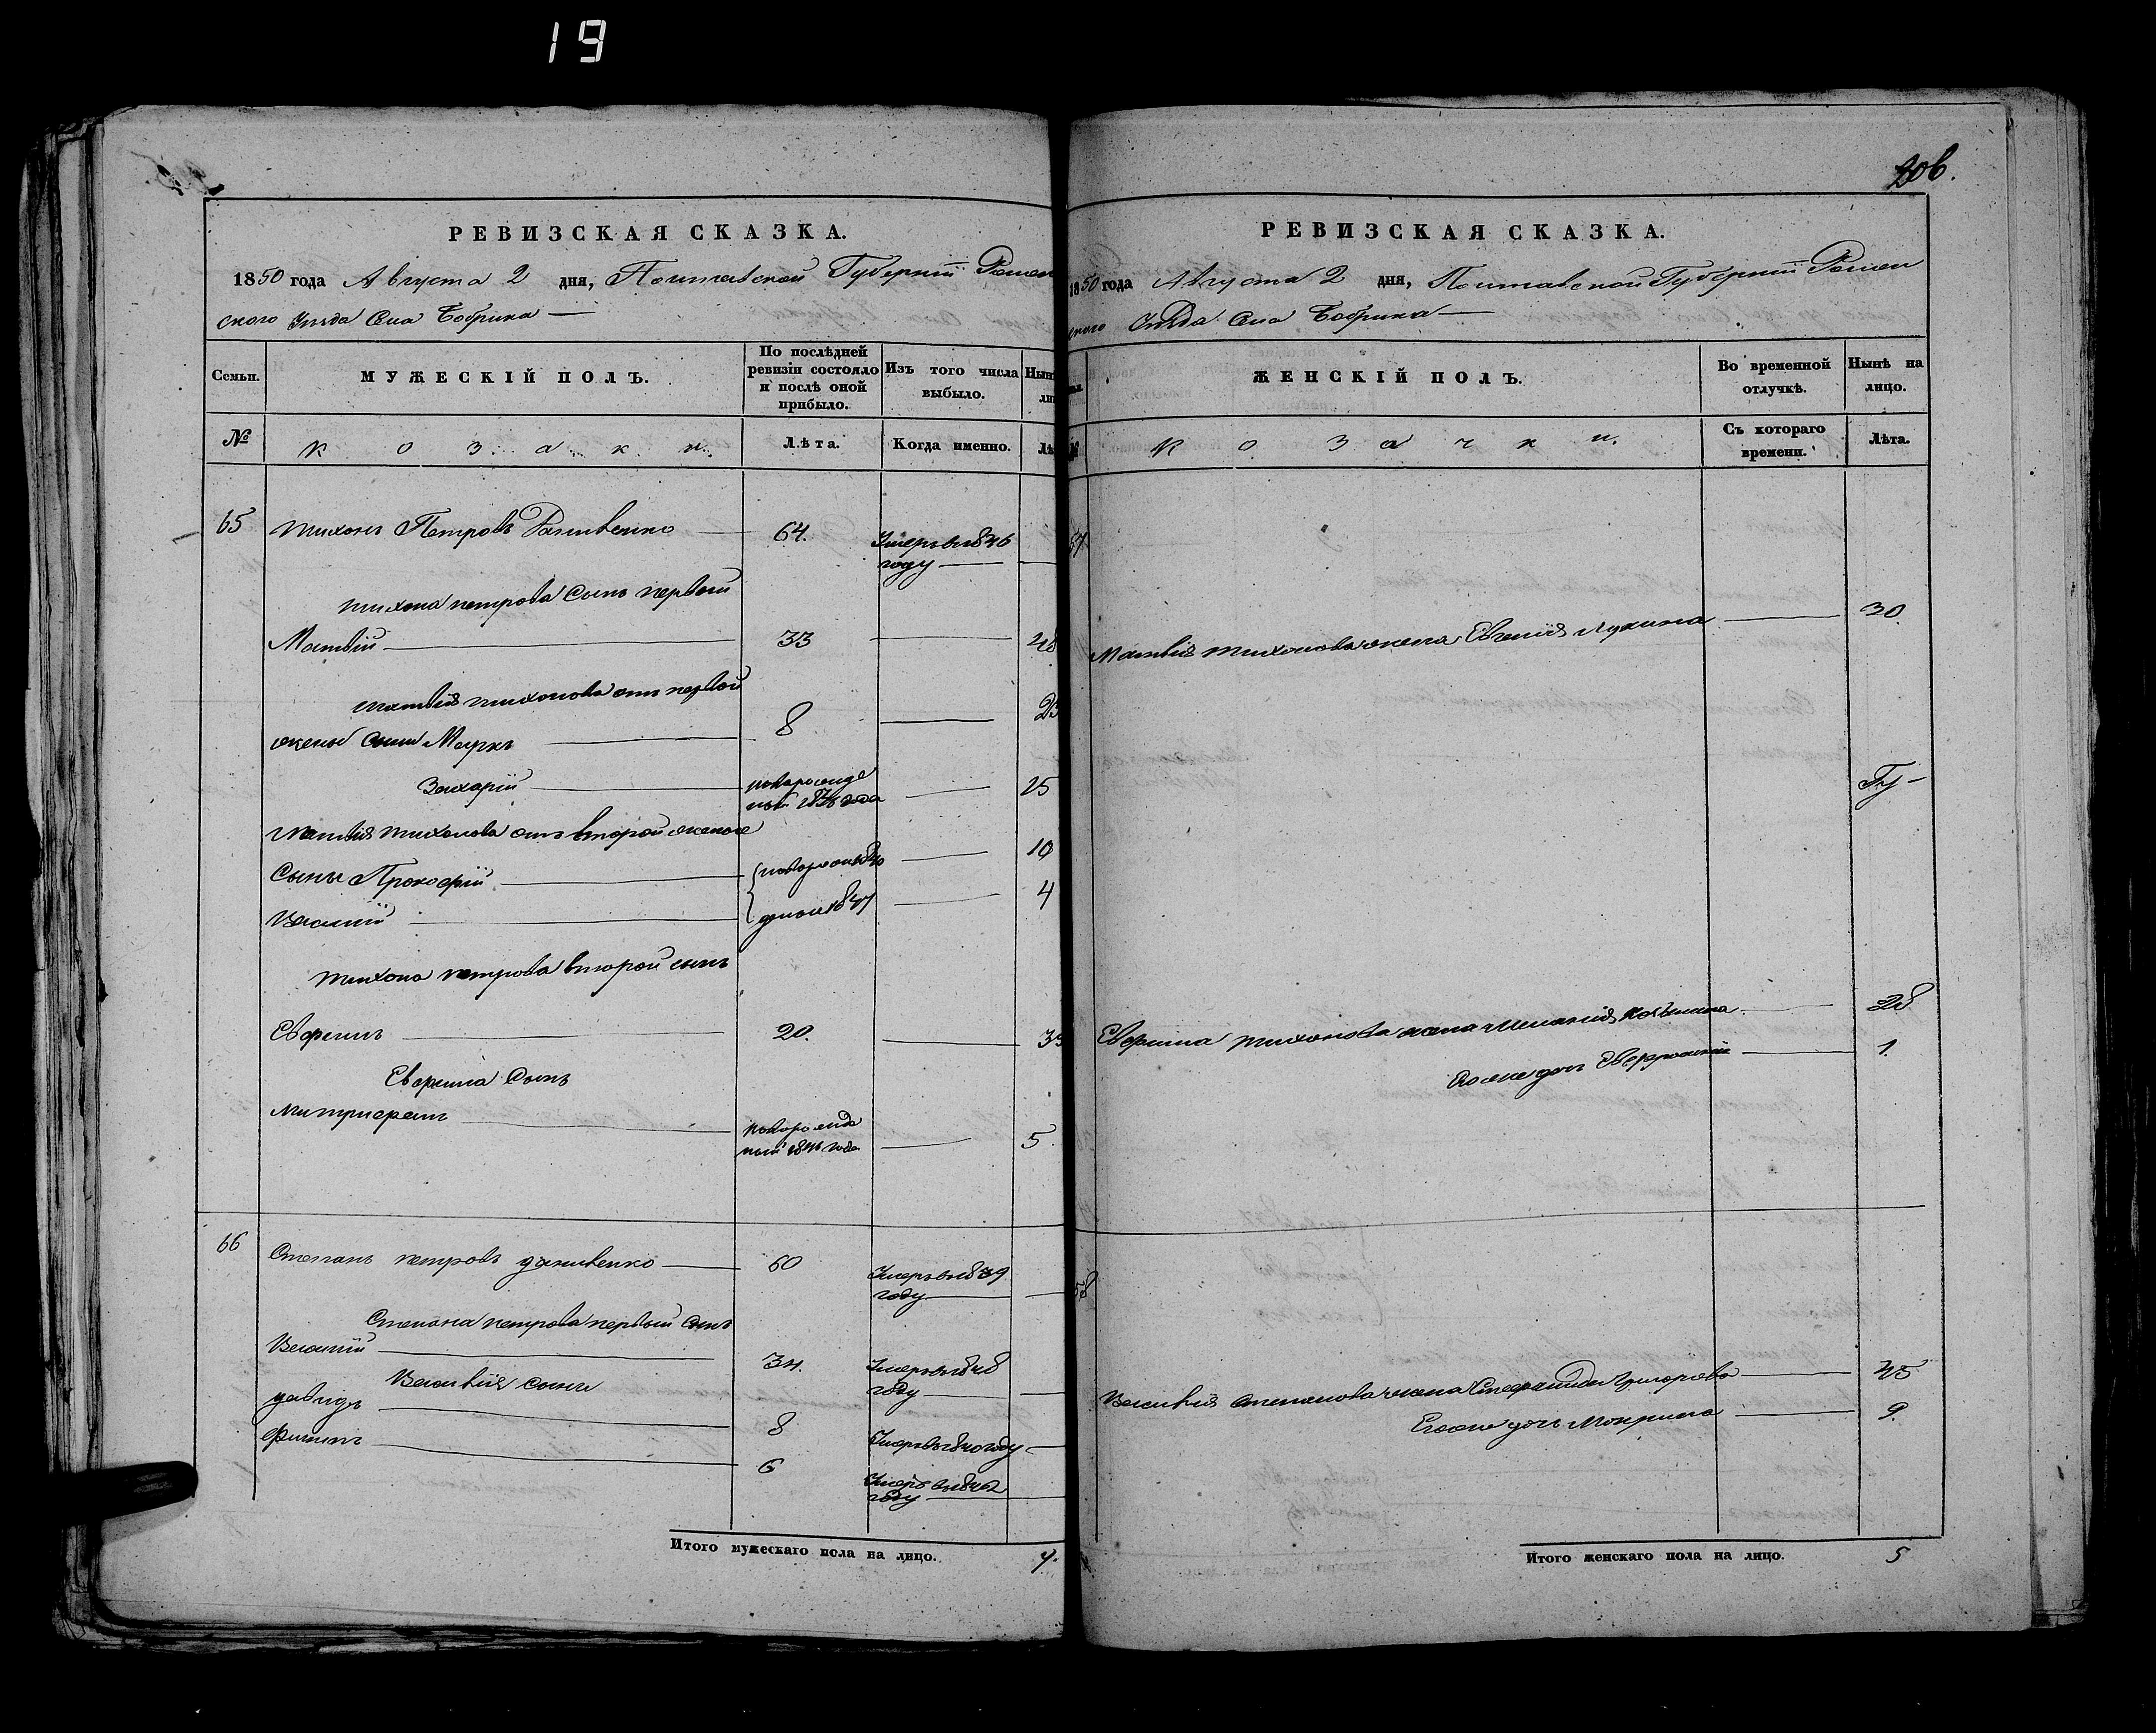 19
206.
РЕВИЗСКАЯ СКАЗКА.
1850 года Августа 2 дня, Полтавской Губернии Ромен
ского Уезда Села Бобрика
Семьи.
МУЖЕСКІЙ ПОЛЪ.
По послѣдней ревизіи состояло и послѣ оной прибыло.
Изъ того числа выбыло.
№
козаки.
Лѣта.
Когда именно.
65 Тихонъ Петровъ 64. Умеръ 1846
году
Тихона Петрова Сынъ первый
Матвій 33 48
Матвія Тихонова отъ первой
жены Сынъ Маркъ 8 23
Захарій новорожде
ный 1836 года 15
Матвія Тихонова отъ второй жены
Сыны Прокофій 10
Василій 4
Тихона Петрова второй сынъ
Евфимъ 20.
Евфима Сынъ
Митрофанъ новорожде
ный 1846 года 5.
66 Степанъ Петровъ 60 Умеръ 1839
году
Степана Петрова первый сынъ
Василій 34. Умеръ 1848
году
Василія сыны
Давидъ 8 Умеръ 1840 году
Филипъ 6 Умеръ 1842
году
Итого мужескаго пола на лицо. 7.
РЕВИЗСКАЯ СКАЗКА.
1850 года Августа 2 дня, Полтавской Губерніи Ромен
ского Уезда Села Бобрика
ЖЕНСКІЙ ПОЛЪ.
Во временной отлучкѣ.
Нынѣ на лицо.
козачки.
Съ котораго времени.
Лѣта.
57
Матвія Тихонова жена Евгенія Лукина 30.
Евфима Тихонова жена Меланія 28
Его же дочь Евфросинія 1.
58
Василія Степанова жена Стефанида Григорьева 45
Его же дочь Мокрина 9.
Итого женскаго пола на лицо. 5